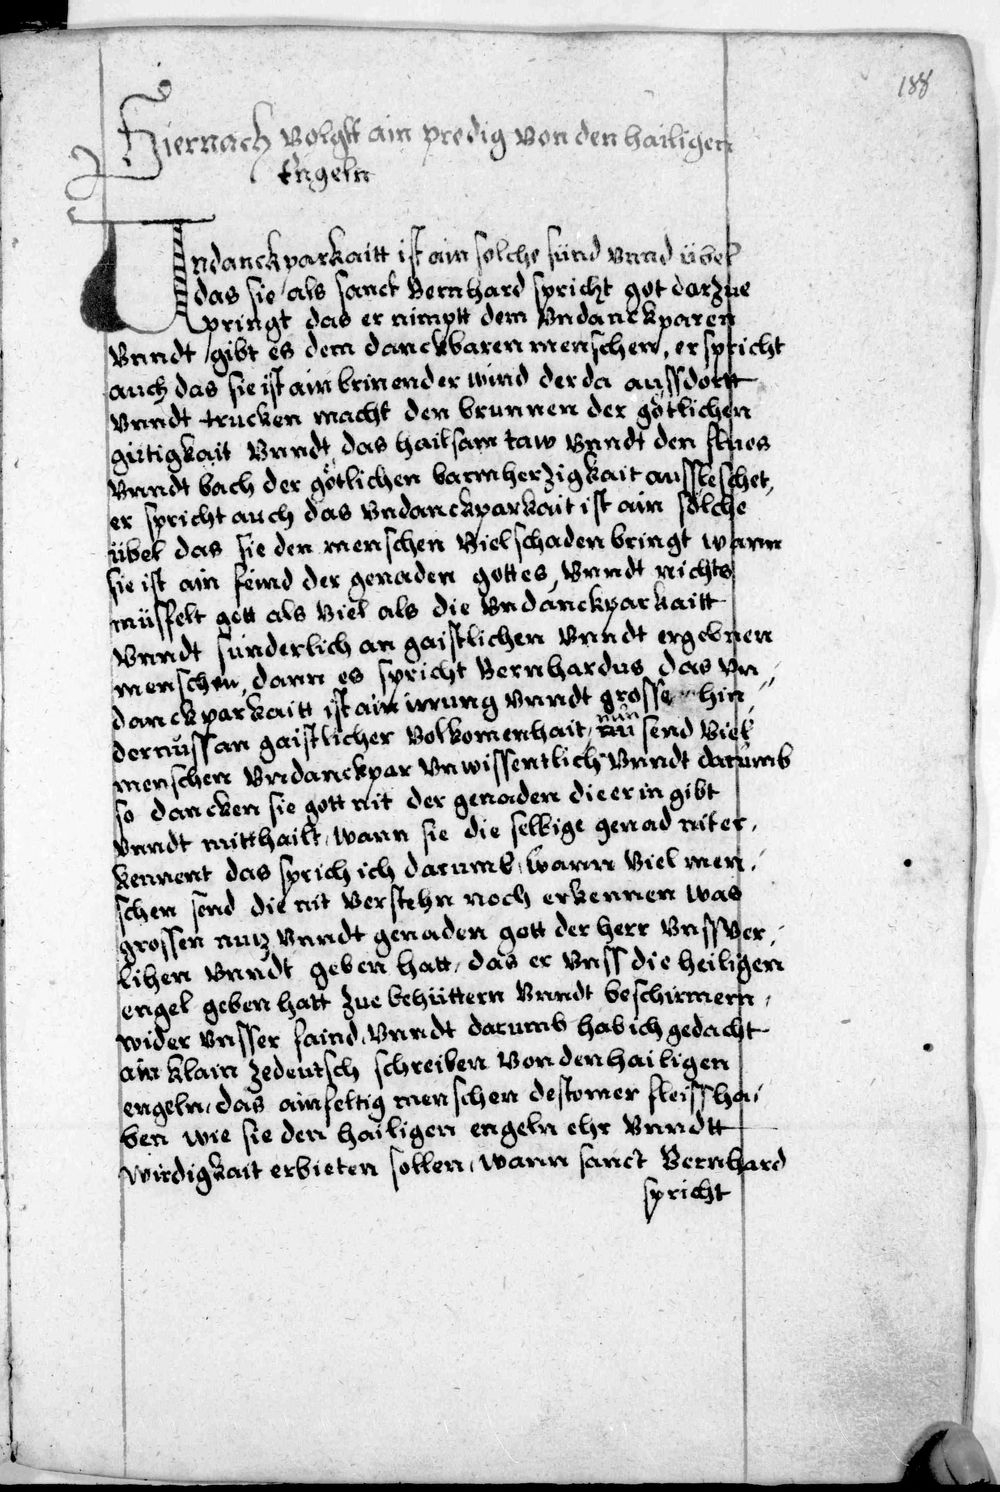 188
Hiernach volgtt ain predig von den hailigen
Engeln
Undanckparkaitt ist ain solche sünd vnnd übel
das sie als sanct Bernhard spricht got darzue
pringt das er nimptt dem Vndanckparen
Vnndt gibt es dem danckbaren menschen, er spricht
auch das sie ist ain brinender wind der da aussdortt
Vnndt trucken macht den brunnen der götlichen
gütigkait Vnndt das hailsam taw Vnndt den flues
Vnndt bach der götlichen barmherzigkait aussleschet,
er spricht auch das Vndanckparkait ist ain solche
übel das sie den menschen Viel schaden bringt wann
sie ist ain feind der genaden gottes, Vnndt nichts
müsfelt gott als Viel als die Vndanckparkaitt
Vnndt sunderlich an gaistlichen Vnndt ergebnen
menschen, dann es spricht Bernhardus das Vn,,
danckparkaitt ist ain irrung Vnndt grosse hin,,
dernuss an gaistlicher Volkomenhait, nun send Viel
menschen Vndanckpar Vnwissentlich Vnndt darumb
so dancken sie gott nit der genaden die er in gibt
Vnndt mitthailt, wann sie die selbige genad nit er,
kennent das sprich ich darumb, wann Viel men,
schen send die nit Verstehn noch erkennen was
grossen nutz Vnndt genaden gott der herr Vnss Ver,
lihen Vnndt geben hatt, das er Vnss die heiligen
engel geben hatt zue behüttern Vnndt beschirmern,
wider Vnsser faind, Vnndt darumb hab ich gedacht
ain klain zedeutsch schreiben Von den hailigen
engeln, das ainfeltig menschen destomer fleiss ha,
ben wie sie den hailigen engeln ehr Vnndtt
wirdigkait erbieten sollen, wann sanct Bernhard
spricht